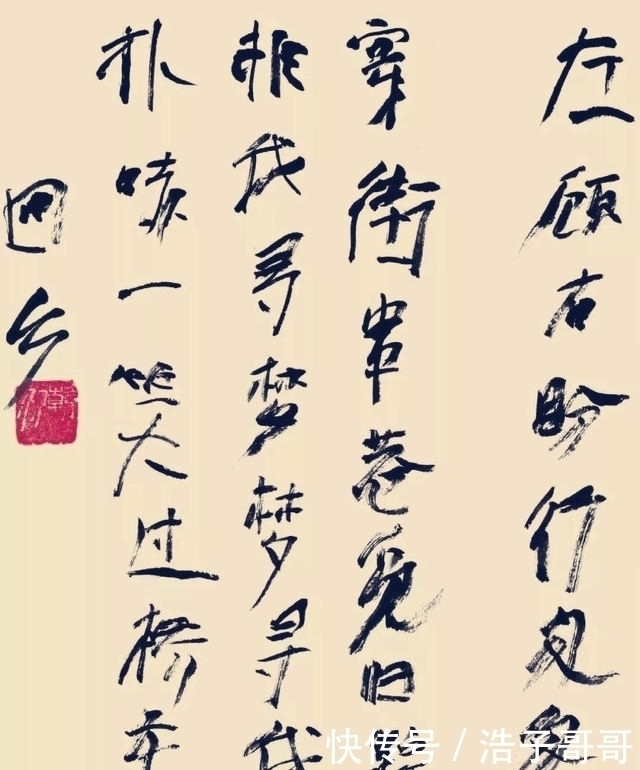 左顾右盼行色
穿街串巷觅旧
我寻梦梦寻我
扑哧一笑大过桥
回乡
快传号 / 浩子哥哥